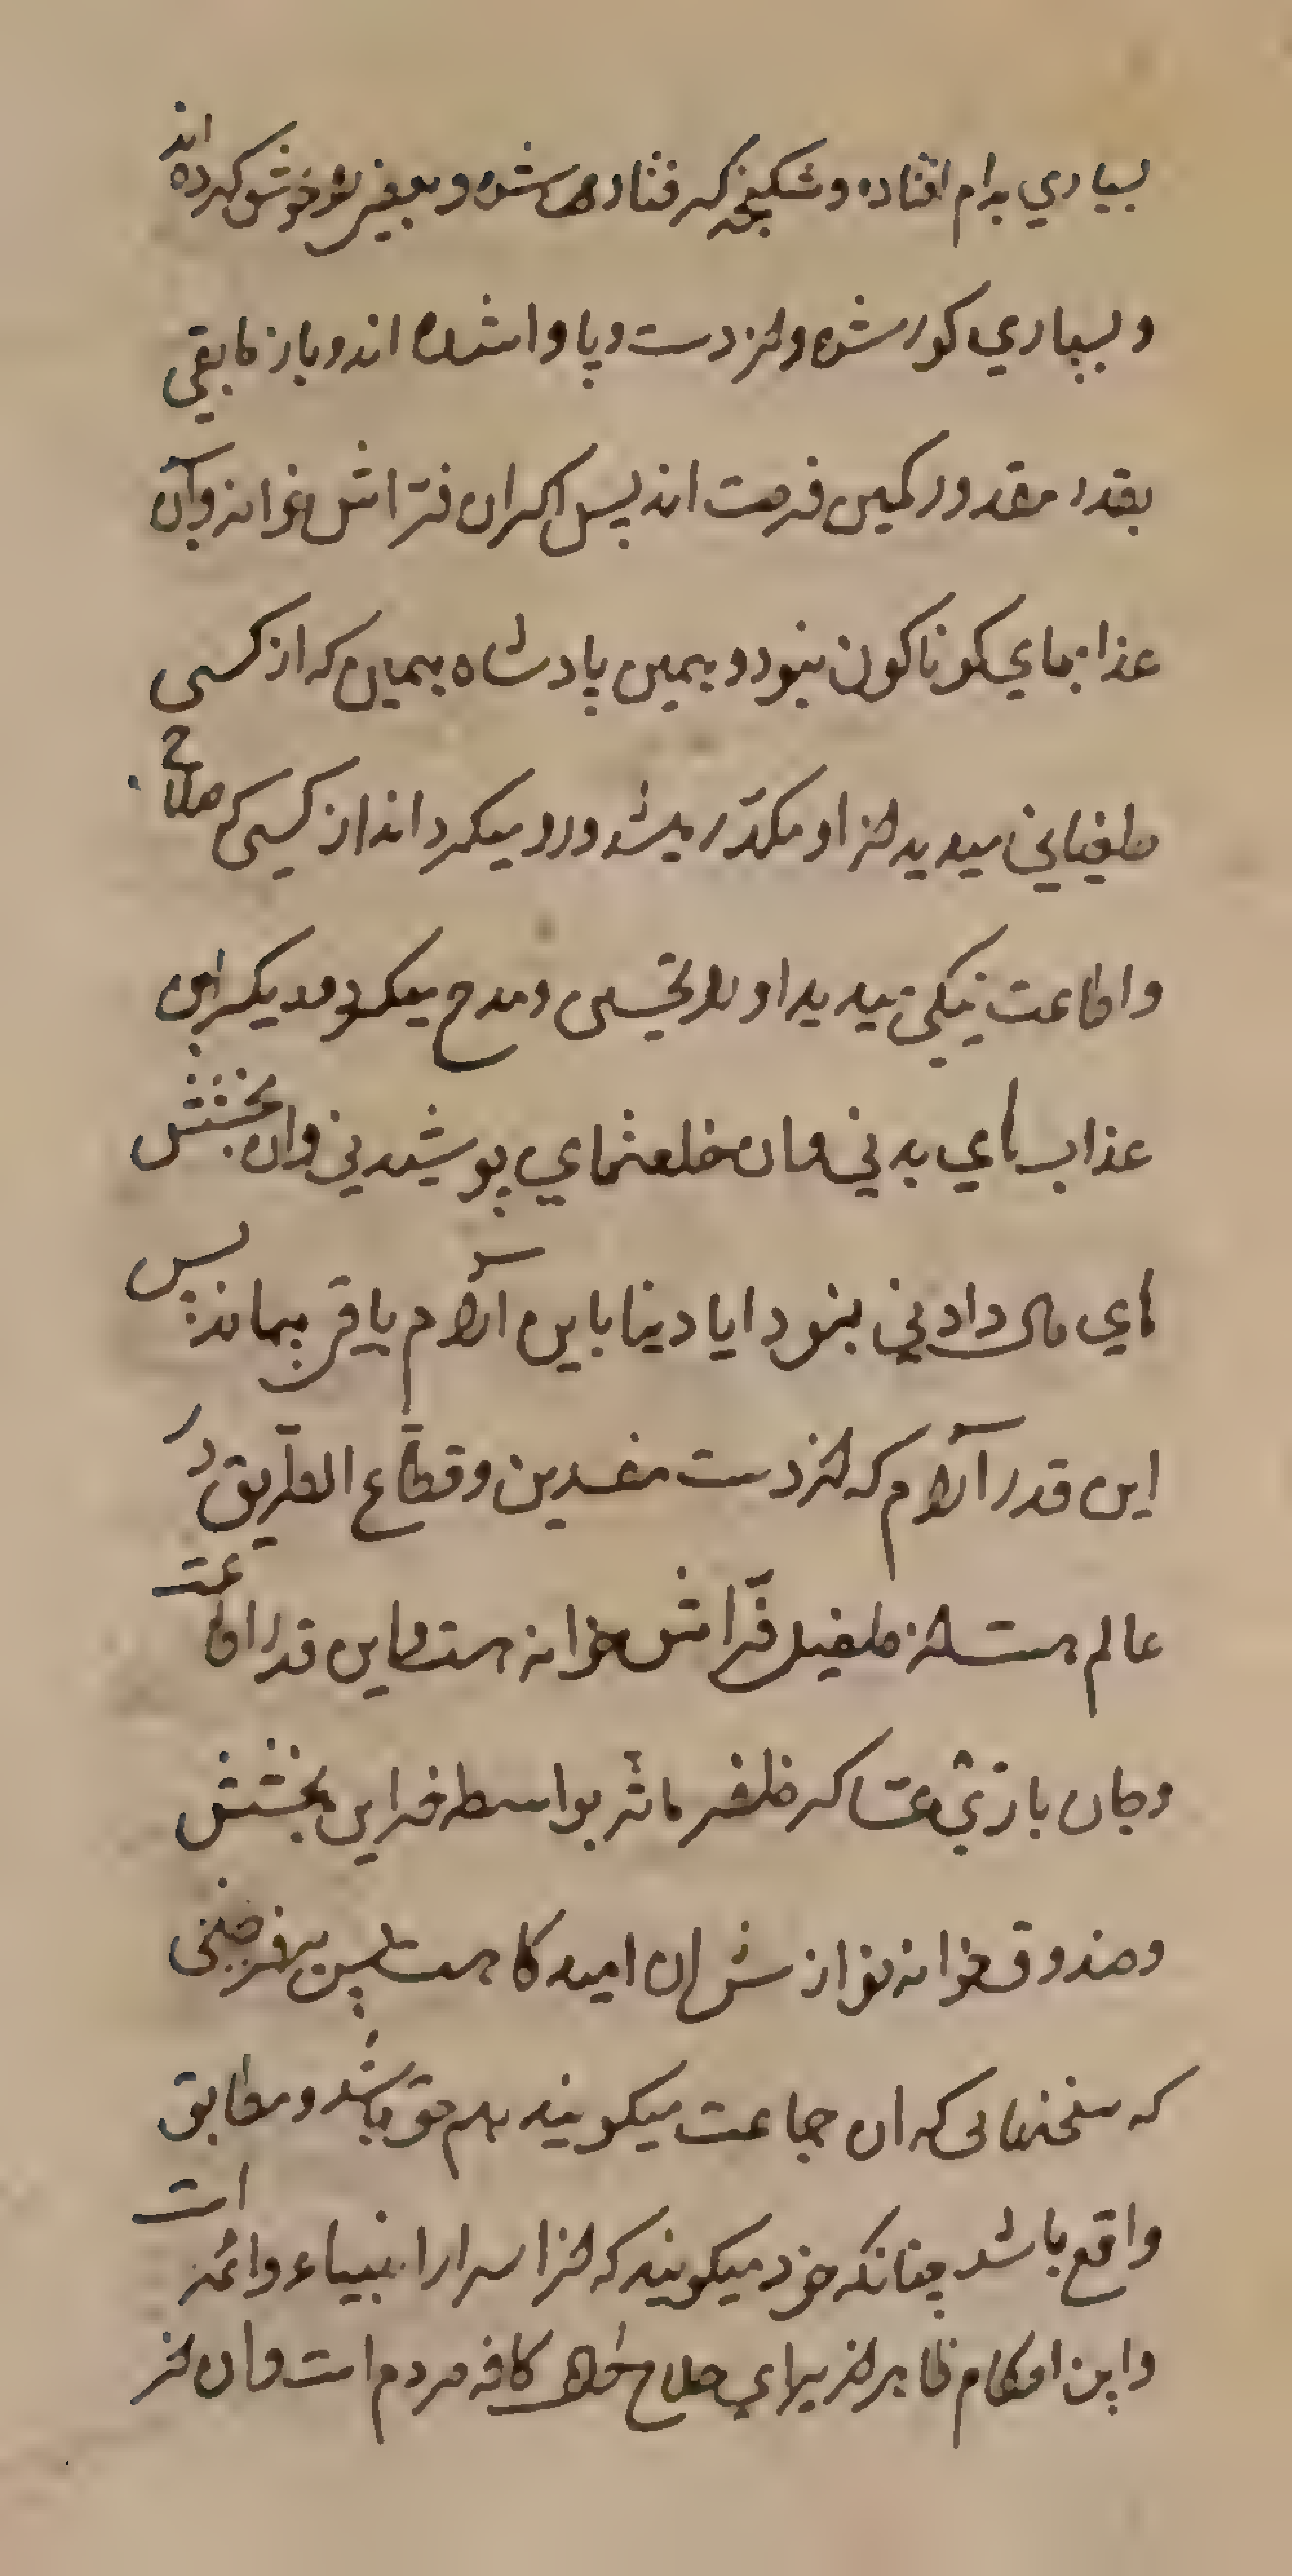 بسیاري بدام افتاده و شکنجه گرفتارها شده و بعضی را خوش کرده اند
و بسیاري کور شده و از دست و پا وا شده اند و باز مابقی
بقدر مقدور کمین فرصت اند پس اگر ان فراش غرانه و آن
عذابهاي کوناکون نبود و بهمین پادشاه بهمین که از کسی
طغیانی میدید از او مکدّر میشد و رو میکرداند از کسی که صلاح
و اطاعت نیکی میدید او را تحسین و مدح میکرد و دیکر این
عذاب هاي بدني و ان خلعتهاي پوشیدني و ان بخشش
هاي مال دادني نبود ایا دنیا باین آرام باقی بماند پس
این قدر آرام که از دست مفسدین و قطّاع الطّریق در
عالم هست از طفیل فرّاش غرانه هست و این قدر اطاعت
و جان بازيْ عساکر ظفر ماثر بواسطه فر این بخشش
و صندوق خزانه نوازش ان امیدکا هست پس بر فرضی
که سخنهایی که ان جماعت میکویند هم حق باشد و مطابق
واقع باشد چنانکه خود میکویند که از اسرار انبیاء و ائمه است
و این احکام ظاهر از براي صلاح حال کافه مردم است و ان از